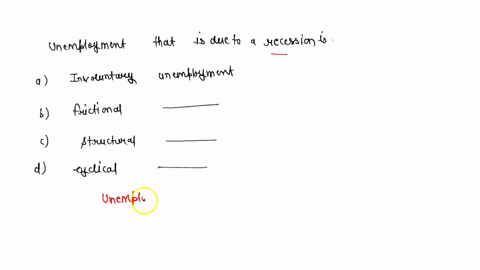 Unemployment that is due to a recession is.
a) Involuntary unemployment
b) frictional
c) structural
d) cyclical
Unempl